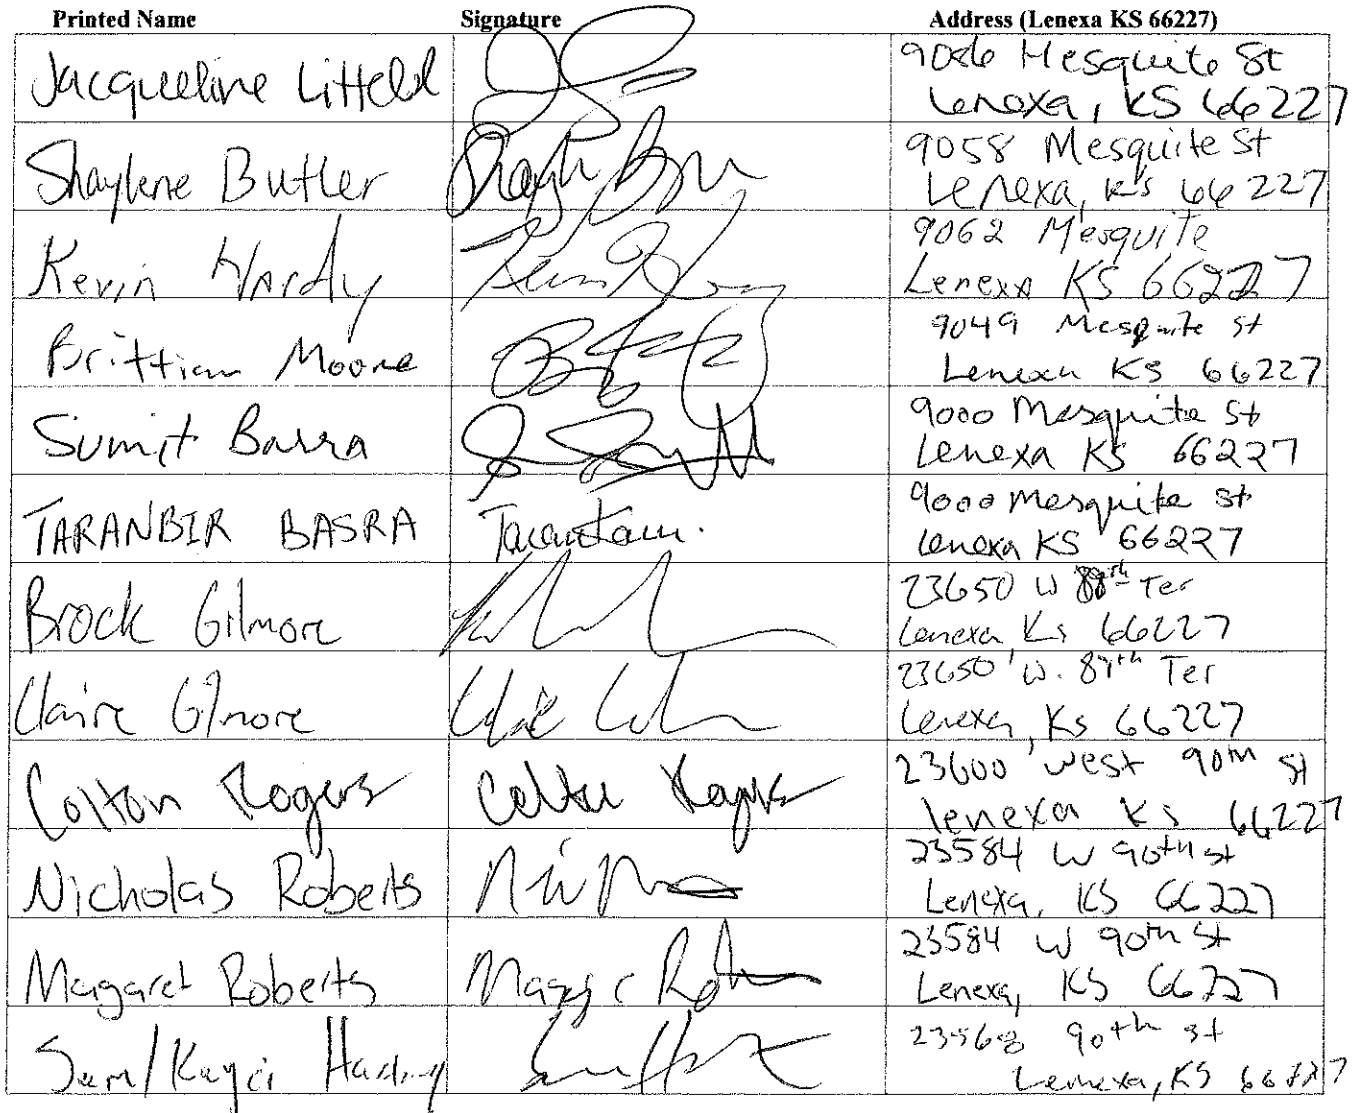 Printed Name Signature Address (Lenexa KS 66227)
Jacqueline Litteld
9056 Mesquite St
Lenexa, KS 66227
Shaylene Butler
9058 Mesquite St
Lenexa, KS 66227
Kevin Hardy
9062 Mesquite
Lenexa KS 66227
Brittian Moore
9049 Mesquite St
Lenexa KS 66227
Sumit Basra
9000 Mesquite St
Lenexa KS 66227
TARANBIR BASRA
9000 Mesquite St
Lenexa KS 66227
Brock Gilmore
23650 W Ter
Lenexa, Ks 66227
Claire Gilmore
23650 W. 89th Ter
Lenexa, Ks 66227
Colton Rogers Colton Rogers
23600 West 90th St
lenexa Ks 66227
Nicholas Roberts
23584 W 90th St
Lenexa, KS 66227
Magaret Roberts Maggie
23584 W 90th St
Lenexa, KS 66227
Sam/Kayci
23568 90th St
Lenexa, KS 66227